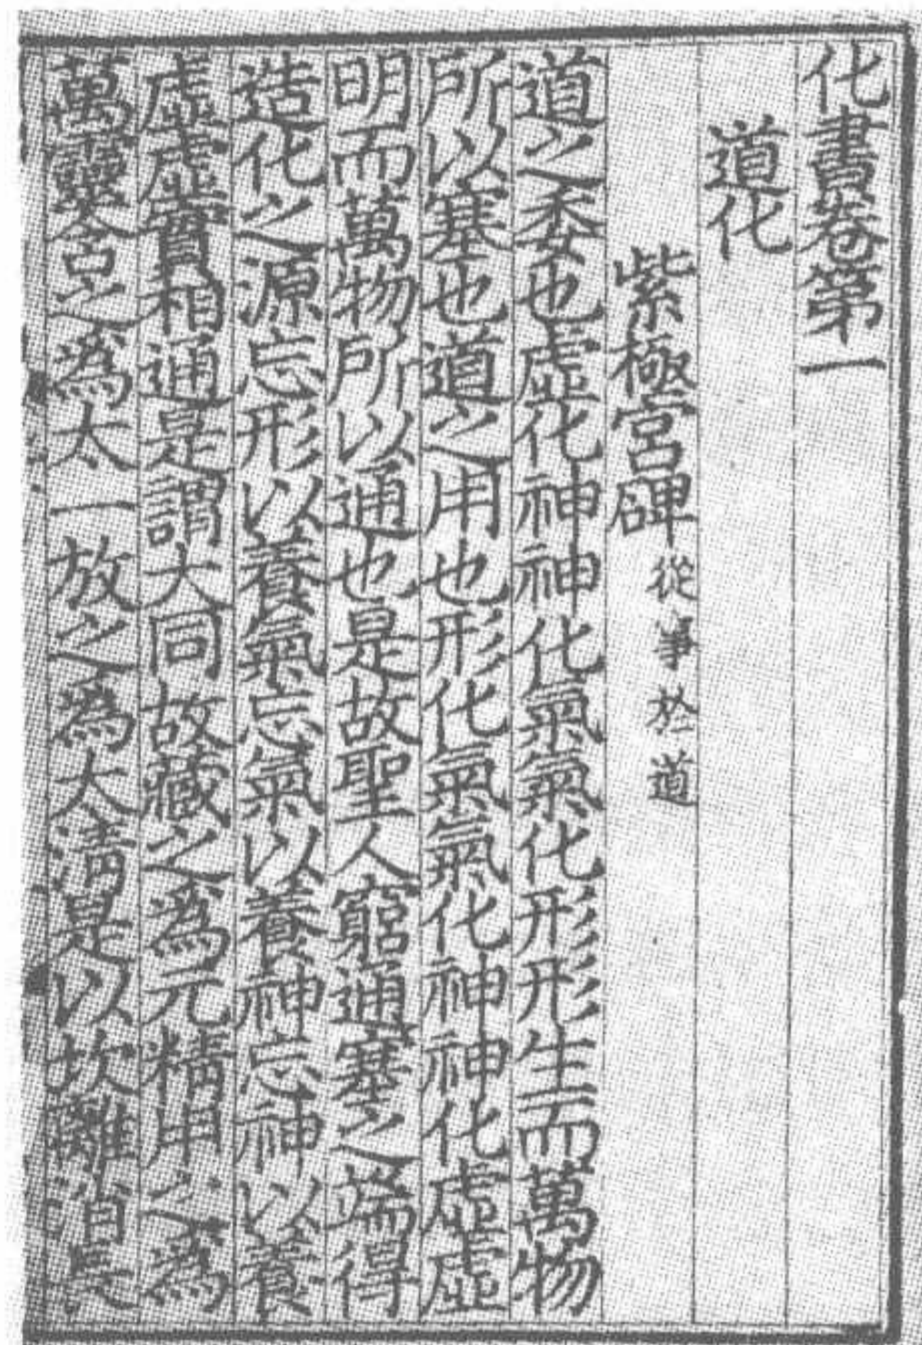 化書卷第一
道化
紫極宮碑 從事於道
道之委也虛化神神化氣氣化形形生而萬物
所以塞也道之用也形化氣氣化神神化虛虛
明而萬物所以通也是故聖人窮通塞之端得
造化之源忘形以養氣忘氣以養神忘神以養
虛虛實相通是謂大同故藏之爲元精用之爲
萬靈含之爲太一放之爲太清是以坎離消長